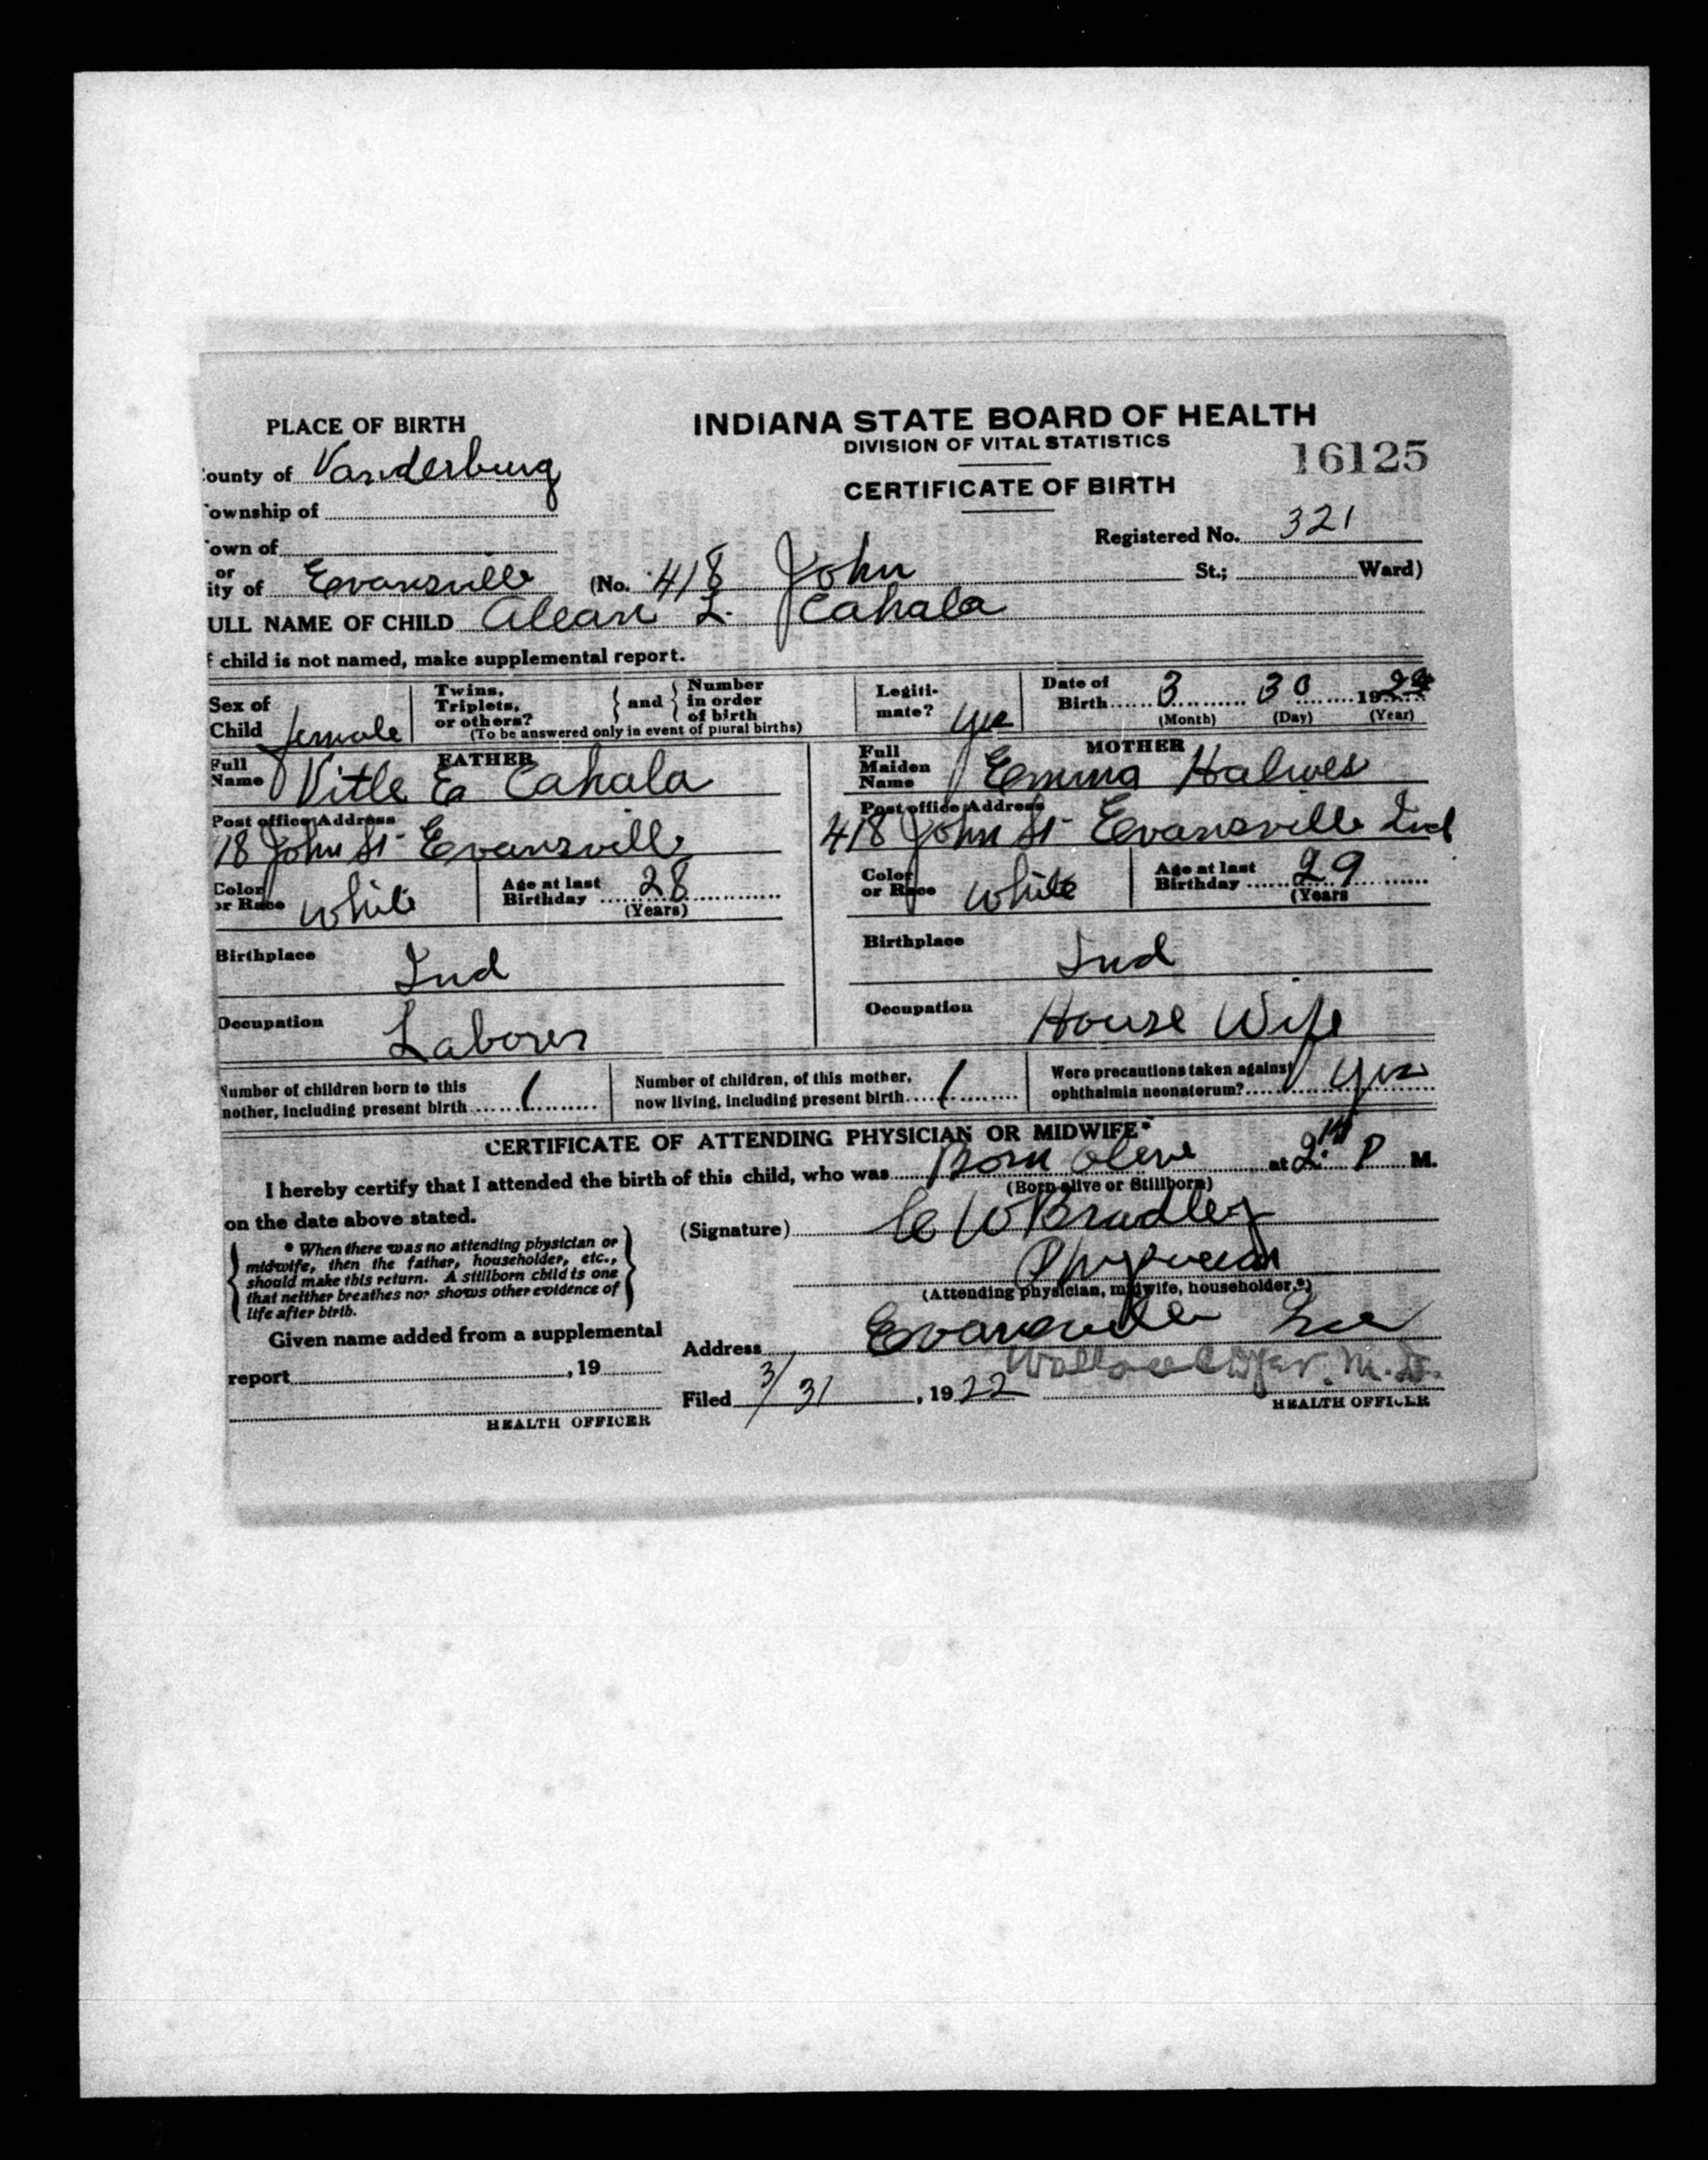 PLACE OF BIRTH
INDIANA STATE BOARD OF HEALTH
DIVISION OF VITAL STATISTICS
16125
ounty of Vanderburg
CERTIFICATE OF BIRTH
ownship of
Registered No. 321
own of
or
ity of Evansville (No. 418 John St.; Ward)
ULL NAME OF CHILD Alean L. Cahala
f child is not named, make supplemental report.
Sex of Child female
Twins, Triplets, or others? { and { Number in order of birth
(To be answered only in event of plural births)
Legiti- mate? yes
Date of Birth 3 30 19
(Month) (Day) (Year)
FATHER
Full Name Vitle E Cahala
Post office Address
18 John St Evansville
Color or Race white
Age at last Birthday 28
(Years)
Birthplace Ind
Occupation Laborer
MOTHER
Full Maiden Name Emma Halwes
Post office Address
418 John St Evansville Ind
Color or Race white
Age at last Birthday 29
(Years
Birthplace Ind
Occupation House Wife
Number of children born to this
mother, including present birth 1
Number of children, of this mother,
now living, including present birth 1
Were precautions taken against
ophthalmia neonatorum? yes
CERTIFICATE OF ATTENDING PHYSICIAN OR MIDWIFE*
I hereby certify that I attended the birth of this child, who was Born alive at 2 P M.
(Born alive or Stillborn)
on the date above stated.
(Signature) C W Bradley
* When there was no attending physician or
midwife, then the father, householder, etc.,
should make this return. A stillborn child is one
that neither breathes nor shows other evidence of
life after birth.
Physician
(Attending physician, midwife, householder.*)
Given name added from a supplemental
report , 19
HEALTH OFFICER
Address Evansville
Filed 3/31 , 19 22 M.D.
HEALTH OFFICER